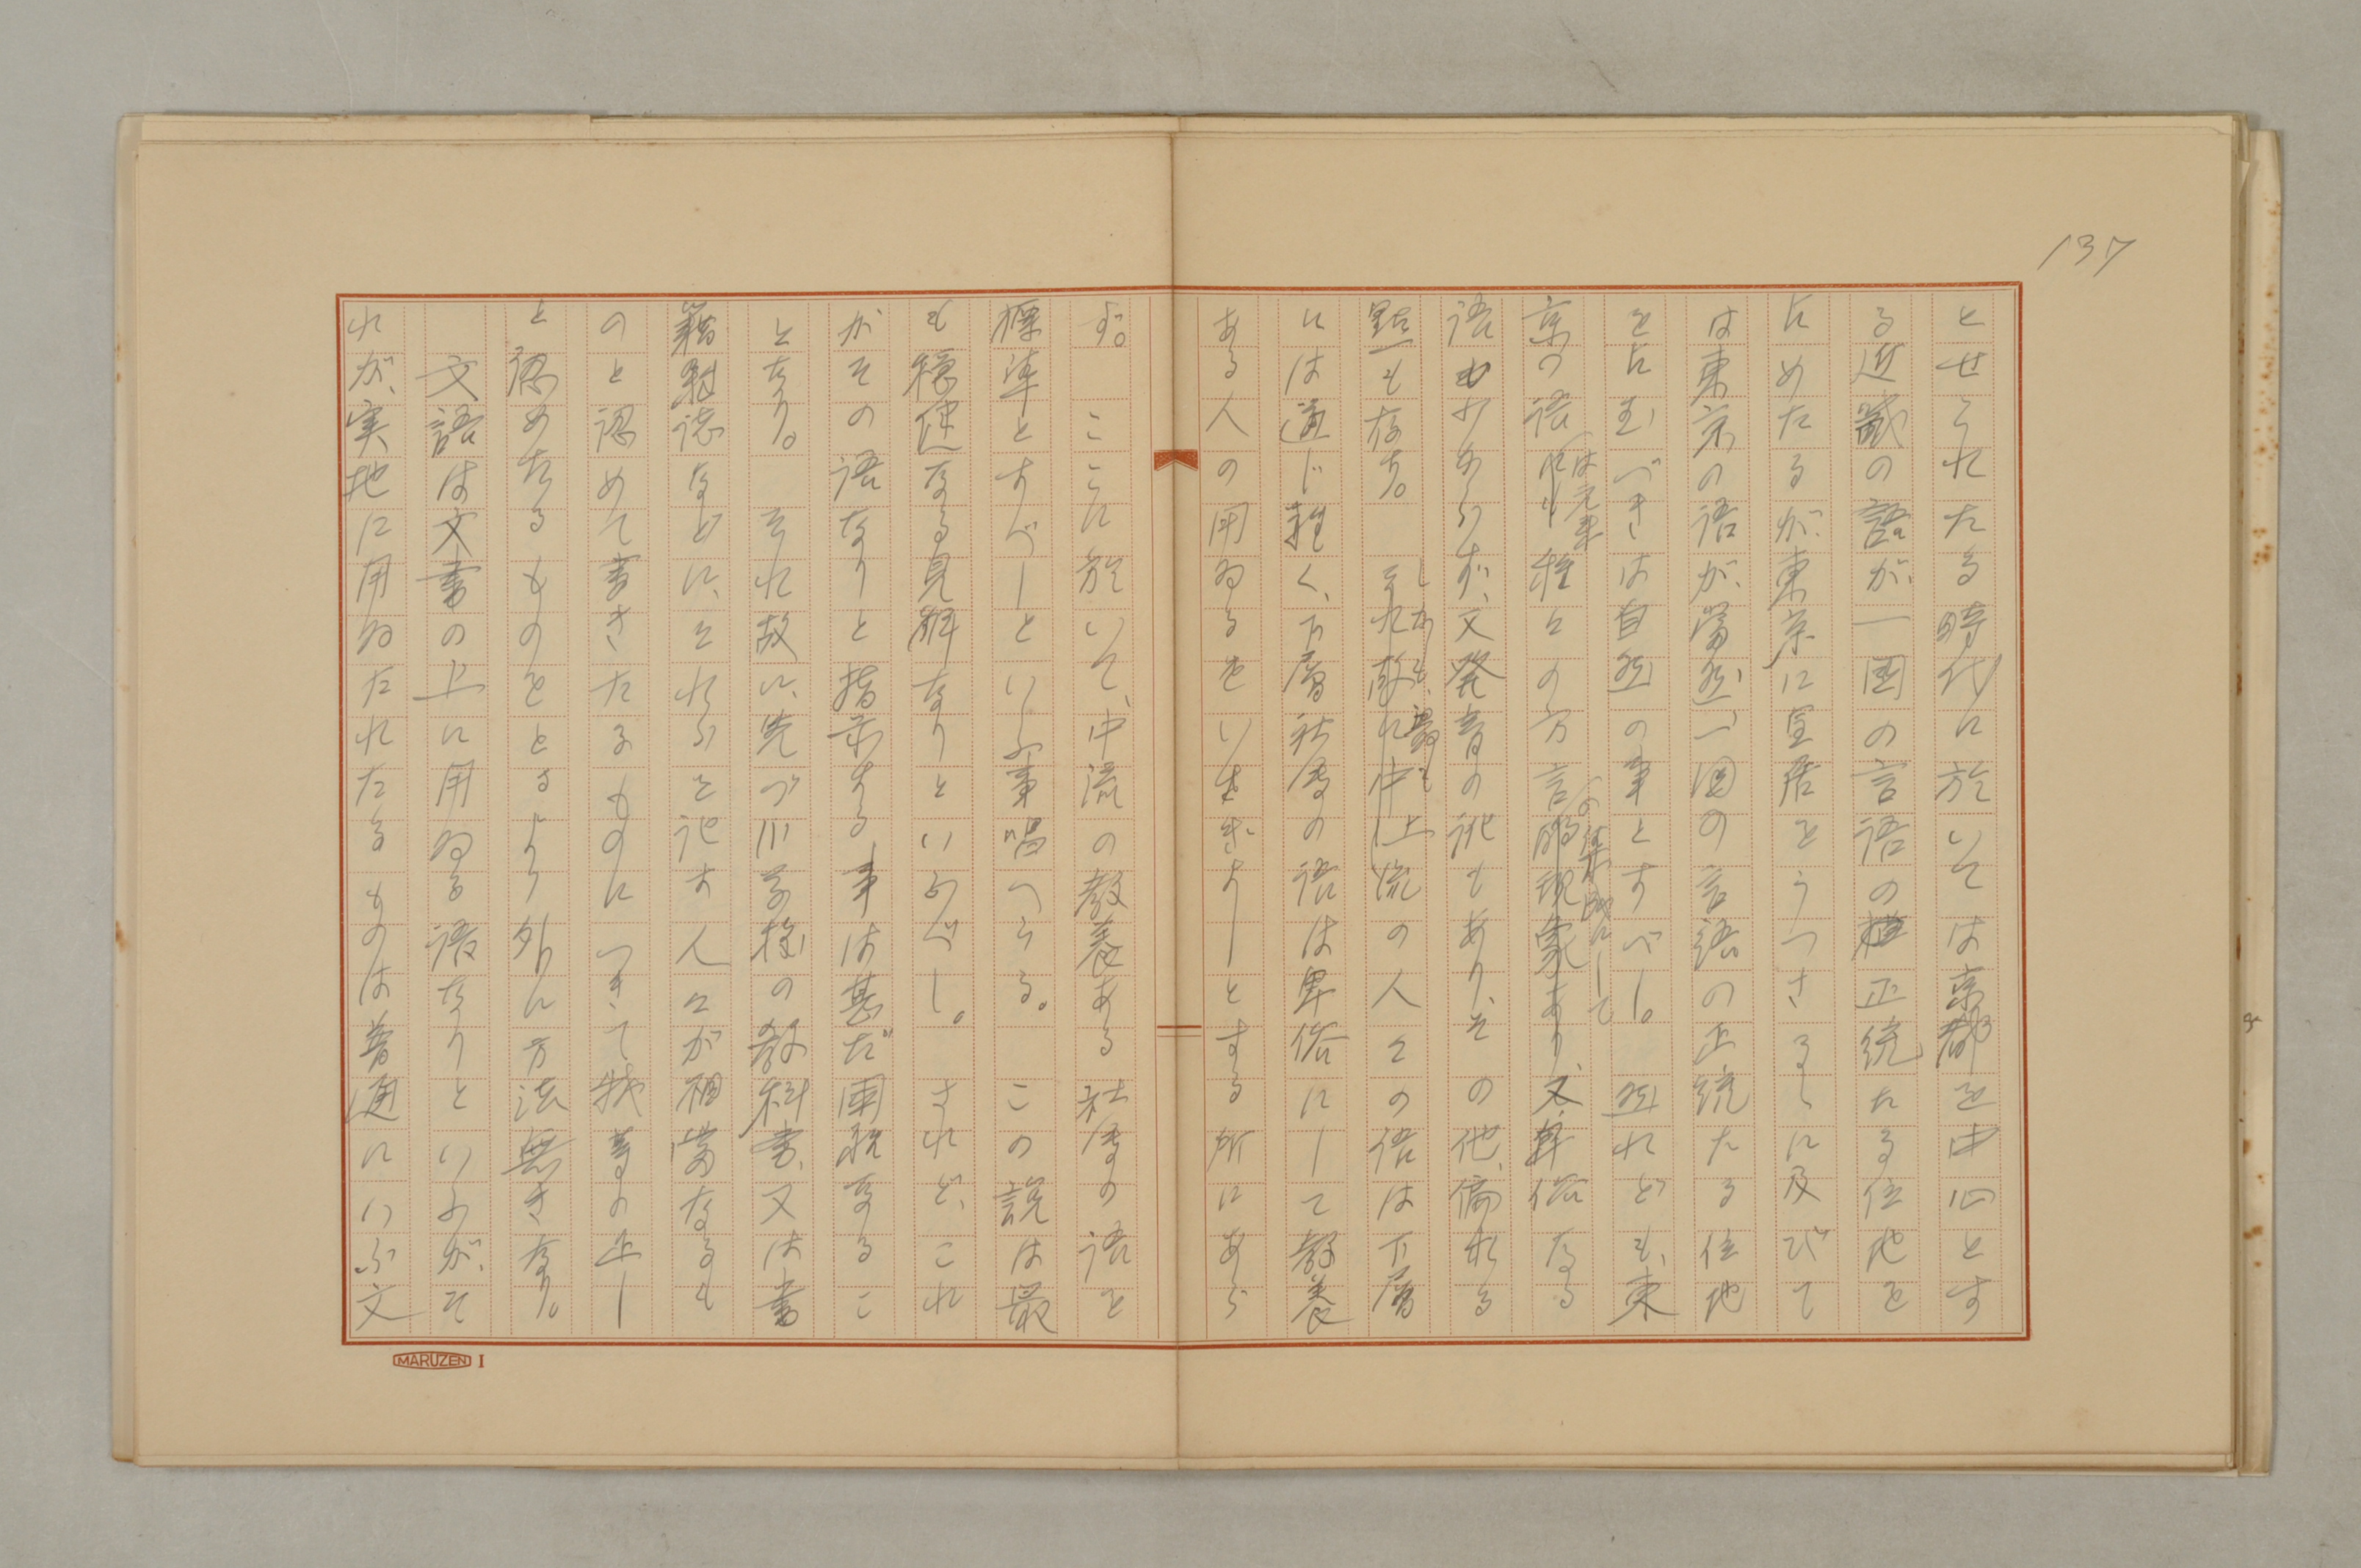 137
とせられたる時代に於いては京都を中心とす
る近畿の語が、一国の言語の正統たる位地を
占めたるが、東京に皇居をうつさるゝに及びて
は東京の語が、当然、一国の言語の正統たる位地
を占むべきは自然の事とすべし。然れども、東
京の語は元来種々の方言の集団にして又、卑俗なる
語も少からず、又発音の訛もあり、その他、偏れる
點も存す。しかも、最も上流の人々の語は下層
には通じ難く、下層社会の語は卑俗にして教養
ある人の用ゐるをいさぎよしとする所にあら
ず。ここに於いて、中流の教養ある社会の語を
標準とすべしといふ事唱へらる。この説は最
も穏健なる見解なりといふべし。されど、これ
がその語なりと指示する事は甚だ困難なるこ
となり。それ故に、先づ小学校の教科書、又は書
籍雑誌などに、それらを記す人々が相当なるも
のと認めて書きたるものにつきて我等の正し
と認めたるものをとるより外に方法無きなり。
文語は文書の上に用ゐる語なりといふが、そ
れが、実地に用ゐたれたるものは普通にいふ文
MARUZEN I